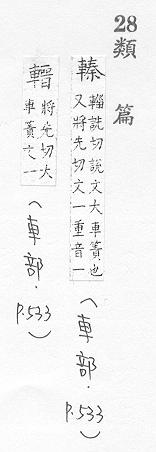 28
類篇
轃
輜詵切說文大車簀也
又將先切文一重音一
(車部.
P.533)
將先切大
車簀文一
(車部.
P.533)